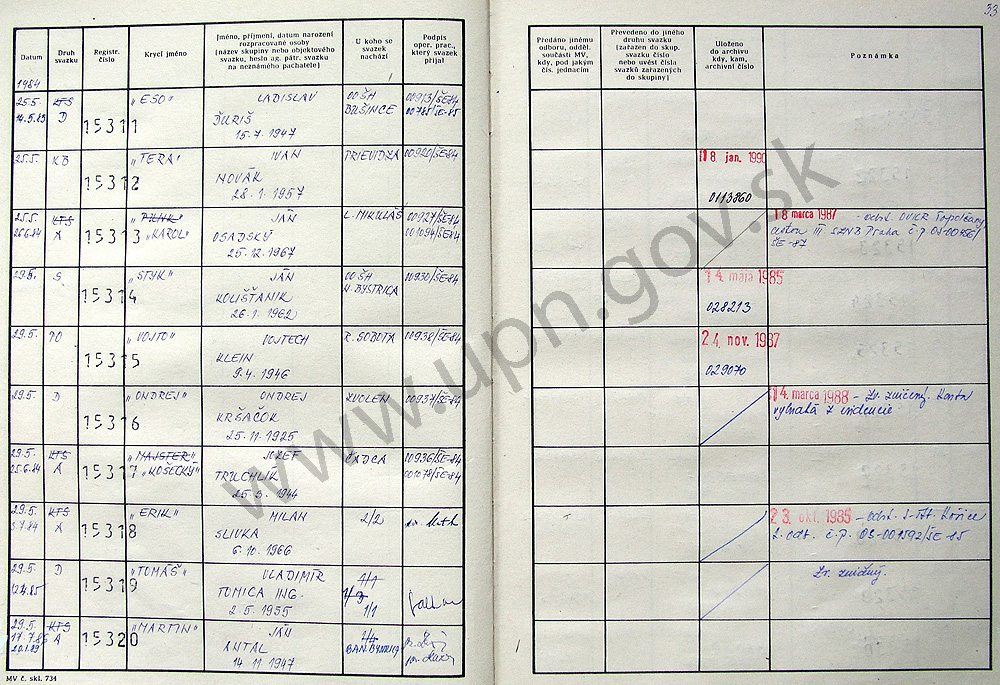 33
Datum
Druh svazku
Registr. číslo
Krycí jméno
Jméno, příjmení, datum narození rozpracované osoby (název skupiny nebo objektového svazku, heslo ag. pátr. svazku na neznámého pachatele)
U koho se svazek nachází
Podpis oper. prac., který svazek přijal
Předáno jinému odboru, odděl. součásti MV, kdy, pod jakým čís. jednacím
Převedeno do jiného druhu svazku (zařazen do skup. svazku číslo nebo uvést čísla svazků zařazených do skupiny)
Uloženo do archivu kdy, kam, archivní číslo
Poznámka
1984
25.5. KTS 15311 "ESO" LADISLAV OO ŠH 00913/ŠE-84
14.5.85 D ĎURIŠ BUŠINCE 00785/ŠE-85
15.7.1947
25.5. KB 15312 "TERA" IVAN PRIEVIDZA 00920/ŠE-84 18. jan. 1990
NOVÁK
28.1.1957 0113860
25.5. KTS 15313 JÁN L. MIKULÁŠ 00927/ŠE-84 18 marca 1987 - odst.
26.6.84 A "KAROL" OSADSKÝ 001094/ŠE-84 III SZNB Praha č.p.
25.12.1967 ŠE-87
29.5. S 15314 "STYK" JÁN OO ŠH 00930/ŠE-84 14. mája 1985
KOLIŠŤANIK N. BYSTRICA
26.1.1962 028213
29.5. PO 15315 "VOJTO" VOJTECH R. SOBOTA 00938/ŠE-84 24. nov. 1987
KLEIN
9.4.1946 029070
29.5. D 15316 "ONDREJ" ONDREJ ZVOLEN 00937/ŠE-84 14. marca 1988 - Zv. zničený. Karta
KRŠAČOK vybratá z evidencie
25.11.1925
29.5. KTS 15317 "MAJSTER" JOZEF ČADCA 00936/ŠE-84
25.6.84 A "KOŠECKÝ" TRUCHLIK 001078/ŠE-84
25.3.1944
29.5. KTS 15318 "ERIK" MILAN 2/2 23. okt. 1985 - odst. Košice
3.7.84 A SLIVKA 2. odt. č.p. OS-001592/ŠE-85
6.10.1966
29.5. D 15319 "TOMÁŠ" VLADIMÍR 1/1 Zv. zničený.
TOMICA ING.
2.5.1955 1/1
29.5. KTS 15320 "MARTIN" JÁN
A ANTAL BAN. BYSTRICA
14.11.1947
MV č. skl. 734
www.upn.gov.sk